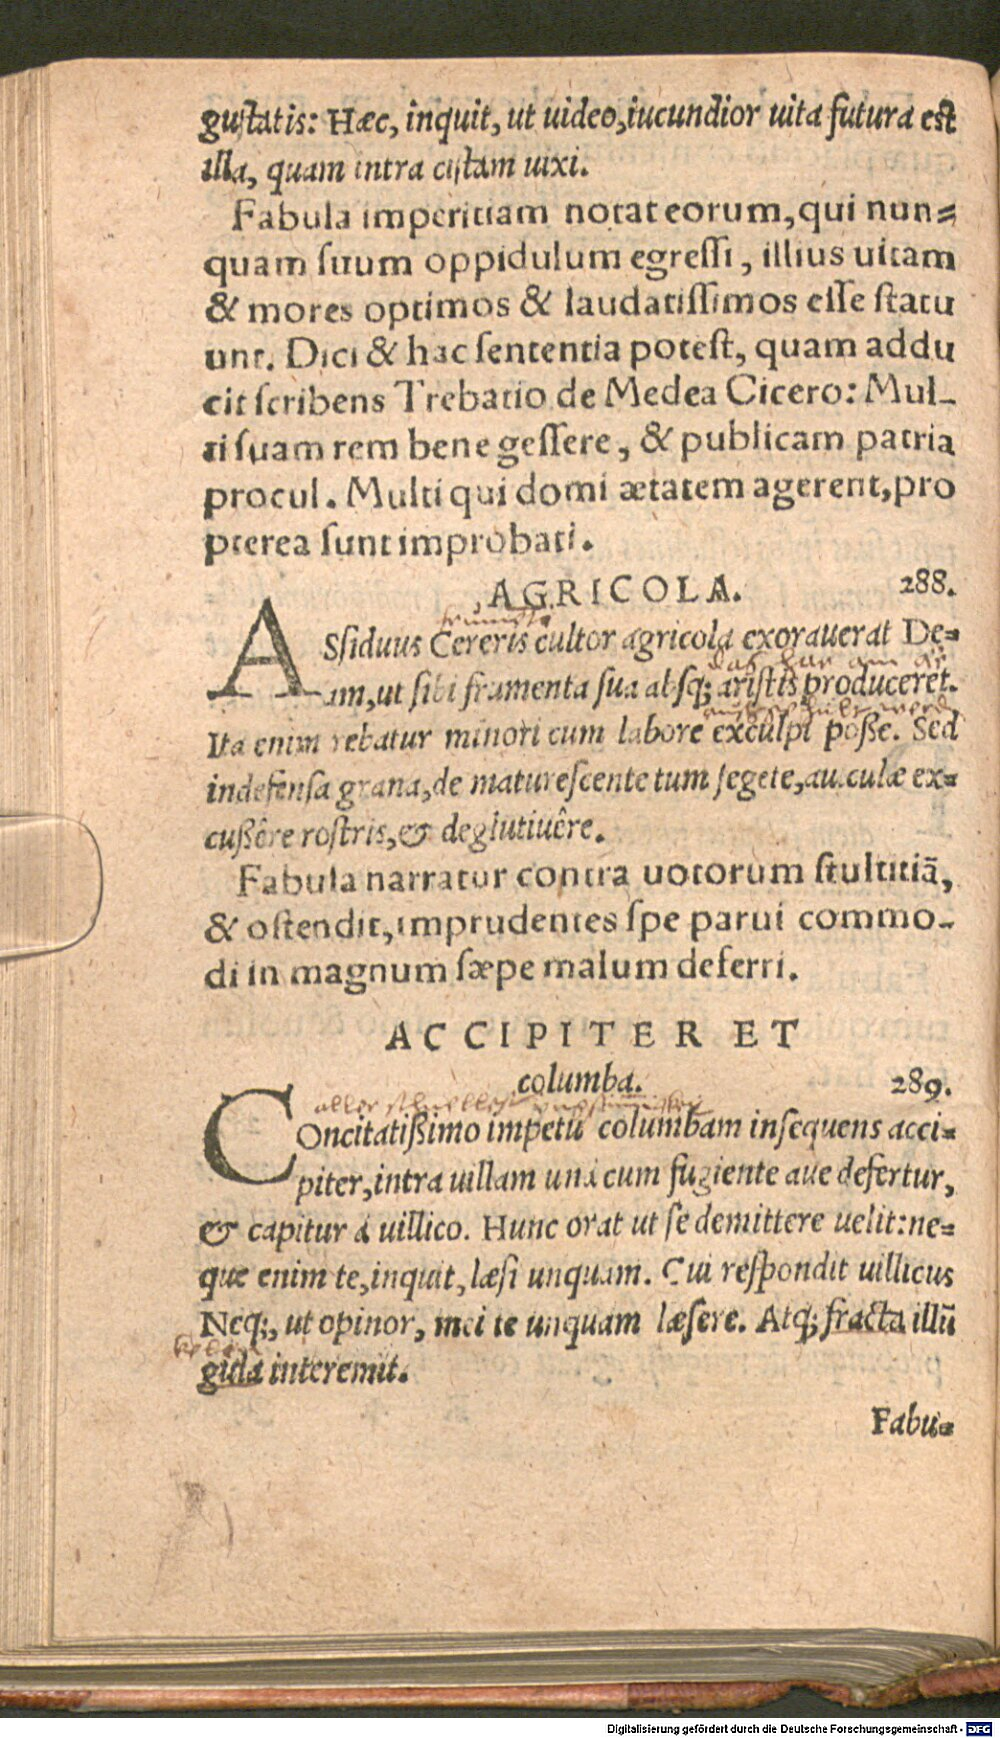 gustatis: Hæc, inquit, ut uideo, iucundior uita futura est
illa, quam intra cistam uixi.
Fabula imperitiam notat eorum, qui nun=
quam suum oppidulum egressi, illius uitam
& mores optimos & laudatissimos esse statu
unt. Dici & hac sententia potest, quam addu
cit scribens Trebatio de Medea Cicero: Mul-
ti suam rem bene gessere, & publicam patria
procul. Multi qui domi ætatem agerent, pro
pterea sunt improbati.
AGRICOLA. 288.
ASsiduus Cereris cultor agricola exorauerat De=
am, ut sibi frumenta sua absq; aristis produceret.
Ita enim rebatur minori cum labore exculpi posse. Sed
indefensa grana, de maturescente tum segete, auiculæ ex=
cussêre rostris, & deglutiuêre.
Fabula narratur contra uotorum stultitiã,
& ostendit, imprudentes spe parui commo-
di in magnum sæpe malum deferri.
ACCIPITER ET
columba. 289.
aller schnellest
COncitatissimo impetu columbam insequens acci=
piter, intra uillam unà cum fugiente aue defertur,
& capitur à uillico. Hunc orat ut se demittere uelit: ne=
que enim te, inquit, læsi unquam. Cui respondit uillicus
Neq;, ut opinor, mei te unquam læsere. Atq; fracta illũ
gula interemit.
Fabu=
Digitalisierung gefördert durch die Deutsche Forschungsgemeinschaft - DFG